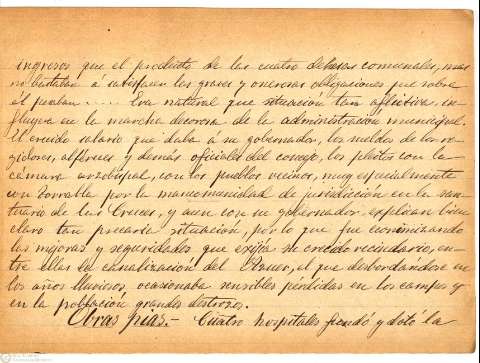 ingresos que el producto de las cuatro dehesas comunales, mas
no bastaban á satisfacer las graves y onerosas obligaciones que sobre
él pesaban..... Era natural que situacion tan aflictiva, in-
fluyera en la marcha decorosa de la administración municipal.
El crecido salario que daba á su gobernador, los sueldos de los re-
gidores, alféreces y demás oficiales del concejo, los pleitos con la
cámara arzobispal, con los pueblos vecinos, muy especialmente
con Torralba por la mancomunidad de jurisdicción en la san-
tuario de las Cruces, y aun con su gobernador, explican bien
claro tan precaria situación, por lo que fue economizando
las mejoras y seguridades que exijía su crecido vecindario, en-
tre ellas la canalización del, el que desbordándose
en los años lluviosos, ocasionaba sensibles pérdidas en los campos y
en la población grandes destrozos.
Obras pias.- Cuatro hospitales fundó y dotó la